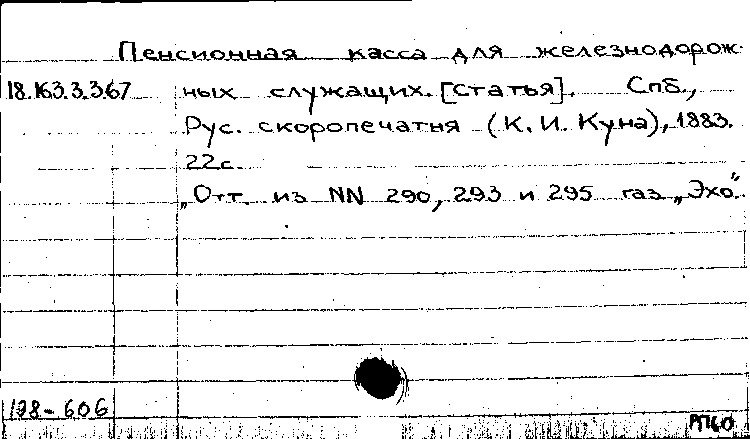 Пенсионная касса для железнодорож-
18.163.3.367 ных служащих. [Статья]. Спб.,
Рус. скоропечатня (К. И. Куна), 1883.
22с.
„Отт. из NN 290, 293 и 295 газ „Эхо".
198-606